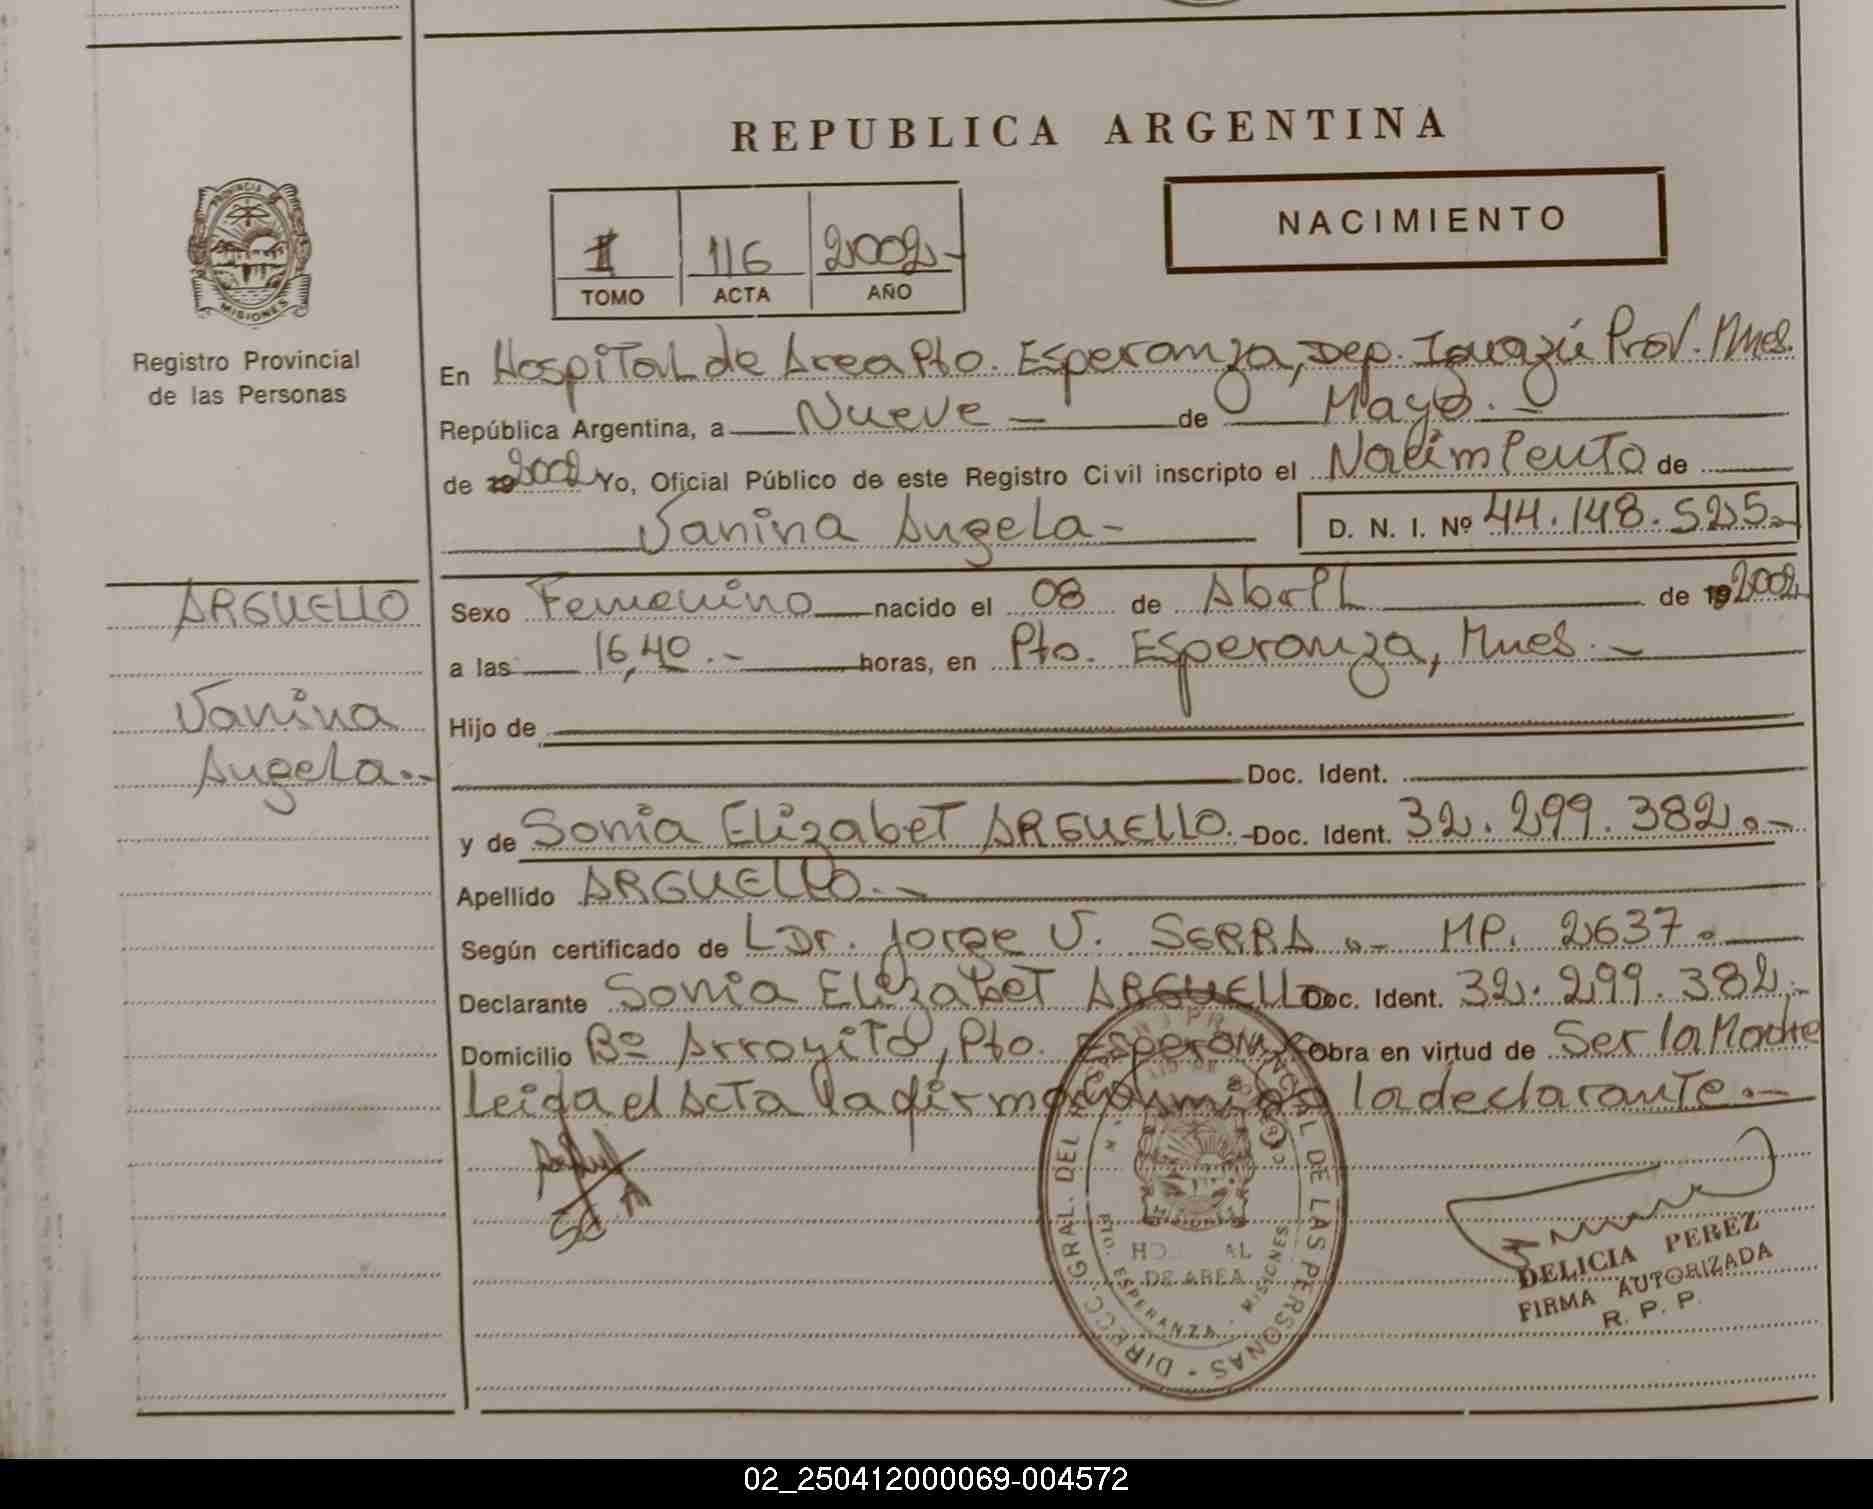 REPUBLICA ARGENTINA
PROVINCIA
MISIONES
Registro Provincial
de las Personas
1 116 2002-
TOMO ACTA AÑO
NACIMIENTO
En Hospital de Area Pto. Esperanza, Dep. Iguazú Prov. Mnes.
República Argentina, a Nueve - de Mayo. -
de 2002 Yo, Oficial Público de este Registro Civil inscripto el Nacimiento de
Vanina Angela - D. N. I. Nº 44.148.525.-
ARGUELLO
Vanina
Angela.-
Sexo Femenino nacido el 08 de Abril de 19 2002
a las 16,40.- horas, en Pto. Esperanza, Mnes. -
Hijo de
Doc. Ident.
y de Sonia Elizabet ARGUELLO.- Doc. Ident. 32.299.382.-
Apellido ARGUELLO.-
Según certificado de Dr. Jorge V. SERRA.- MP. 2637.
Declarante Sonia Elizabet ARGUELLO Doc. Ident. 32.299.382.-
Domicilio Bº Arroyito, Pto. Esperanza Obra en virtud de Ser la Madre
Leida el Acta la firma conmigo la declarante.-
DIRECC. GRAL. DEL REGISTRO PROVINCIAL DE LAS PERSONAS
MISIONES
DE AREA
PTO. ESPERANZA - MISIONES
DELICIA PEREZ
FIRMA AUTORIZADA
R. P. P.
02_250412000069-004572